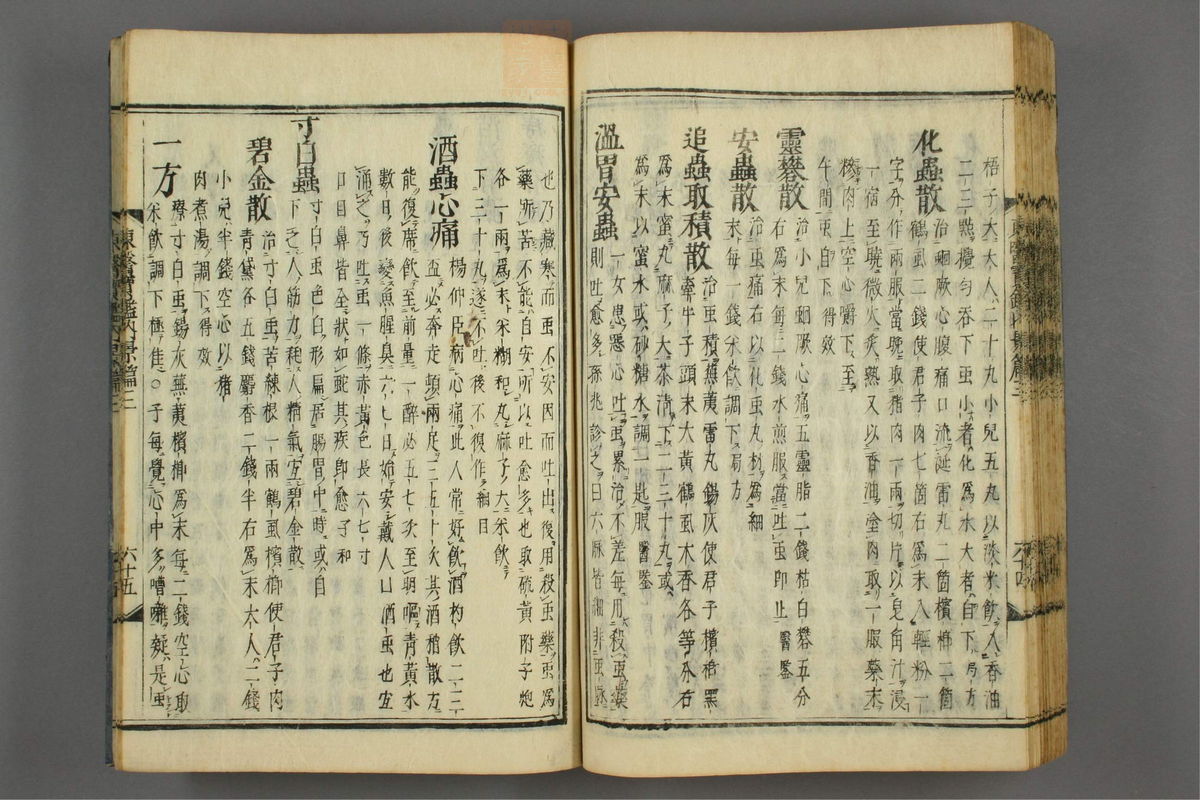 梧子大大人二十丸小兒五丸以漆米飮入香油
二三點攪勻呑下虫小者化爲水大者自下局方
化蟲散 治蛔厥心腹痛口流涎雷丸二箇檳榔二箇
鶴虱二錢使君子肉七箇右爲末入輕粉一
字分作兩服當晩取猪肉一兩切片以皂角汁浸
一宿至曉微火炙熟又以香油塗肉取一服藥末
糝肉上空心嚼下至
午間虫自下得效
靈礬散 治小兒蛔厥心痛五靈脂二錢枯白礬五分
右爲末每二錢水煎服當吐虫卽止醫鑒
安蟲散 治虫痛右以化虫丸材爲細
末每一錢米飮調下局方
追蟲取積散 治虫積蕪荑雷丸錫灰使君子檳榔黑
牽牛子頭末大黃鶴虱木香各等分右
爲末蜜丸麻子大茶淸下二三十丸或
爲末以蜜水或砂糖水調一匙服醫鑒
溫胃安蟲 一女患惡心吐虫累治不差每用殺虫藥
則吐愈多孫兆診之曰六脈皆細非虫脈
也乃藏寒而虫不安因而吐出復用殺虫藥虫爲
藥所苦不能自安所以吐愈多也取硫黃附子炮
各一兩爲末米糊和丸麻子大米飮
下三十丸遂不吐後不復作綱目
酒蟲心痛 楊仰臣病心痛此人常好飮酒初飮二三
盃必奔走頓兩足三五十次其酒稍散方
能復席飮至前量一醉必五七次至明嘔靑黃水
數日後變魚腥臭六七日始安戴人曰酒虫也宜
涌之乃吐虫一條赤黃色長六七寸
口目鼻皆全狀如蛇其疾卽愈子和
寸白蟲 寸白虫色白形扁居腸胃中時或自
下乏人筋力耗人精氣宜碧金散
碧金散 治寸白虫苦練根一兩鶴虱檳榔使君子肉
靑黛各五錢麝香二錢半右爲末大人二錢
小兒半錢空心以猪
肉煮湯調下得效
一方 療寸白虫錫灰蕪荑檳榔爲末每二錢空心取
米飮調下極佳○予每覺心中多嘈雜疑是虫
東醫寶鑑內景篇三
六十五